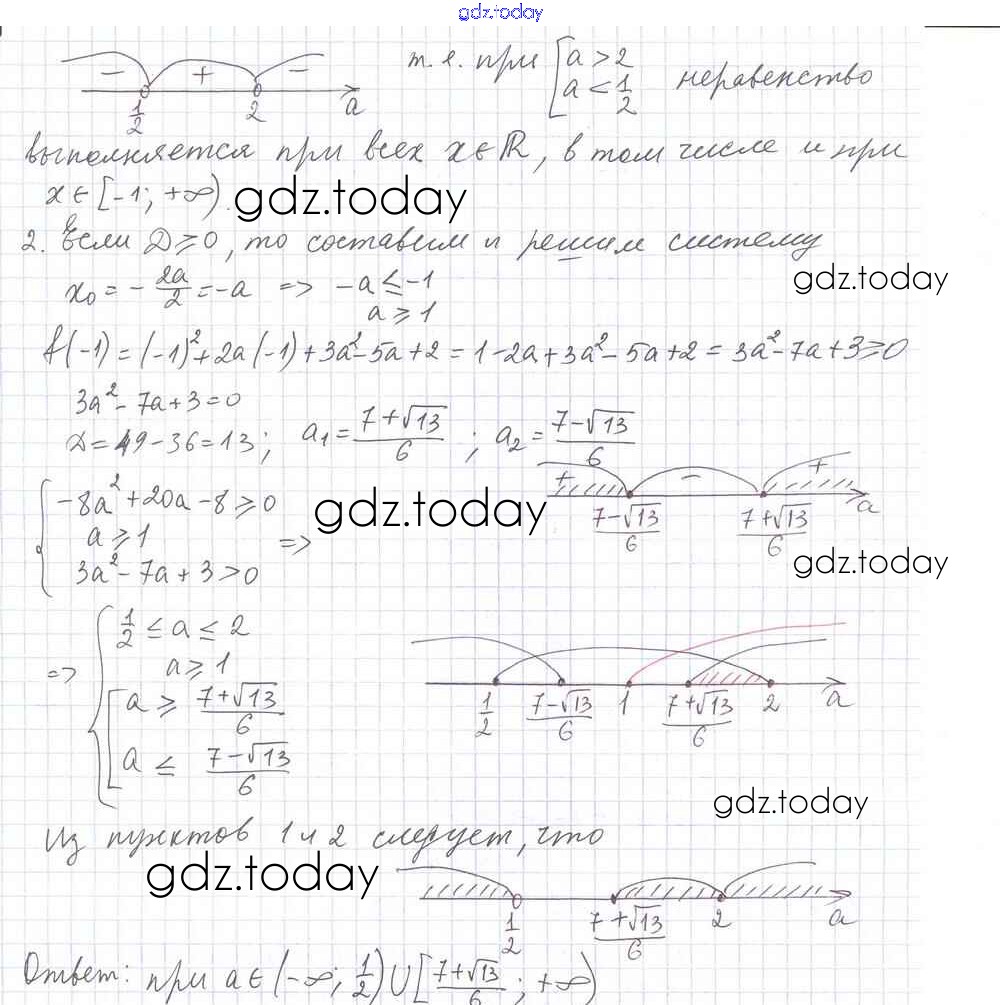 gdz.today
− + −
1/2 2 a
т. е. при [a > 2
a < 1/2 неравенство
выполняется при всех x ∈ ℝ, в том числе и при
x ∈ [-1; +∞).
gdz.today
2. Если D ≥ 0, то составим и решим систему
x₀ = - 2a/2 = -a => -a ≤ -1
a ≥ 1
gdz.today
f(-1) = (-1)² + 2a(-1) + 3a² - 5a + 2 = 1 - 2a + 3a² - 5a + 2 = 3a² - 7a + 3 ≥ 0
3a² - 7a + 3 = 0
D = 49 - 36 = 13; a₁ = (7+√13)/6 ; a₂ = (7-√13)/6
+ − +
(7-√13)/6 (7+√13)/6 a
{-8a² + 20a - 8 ≥ 0
a ≥ 1 =>
3a² - 7a + 3 > 0
gdz.today
gdz.today
=> {1/2 ≤ a ≤ 2
a ≥ 1
[a ≥ (7+√13)/6
a ≤ (7-√13)/6
1/2 (7-√13)/6 1 (7+√13)/6 2 a
gdz.today
Из пунктов 1 и 2 следует, что
gdz.today
1/2 (7+√13)/6 2 a
Ответ: при a ∈ (-∞; 1/2) ∪ [(7+√13)/6; +∞)